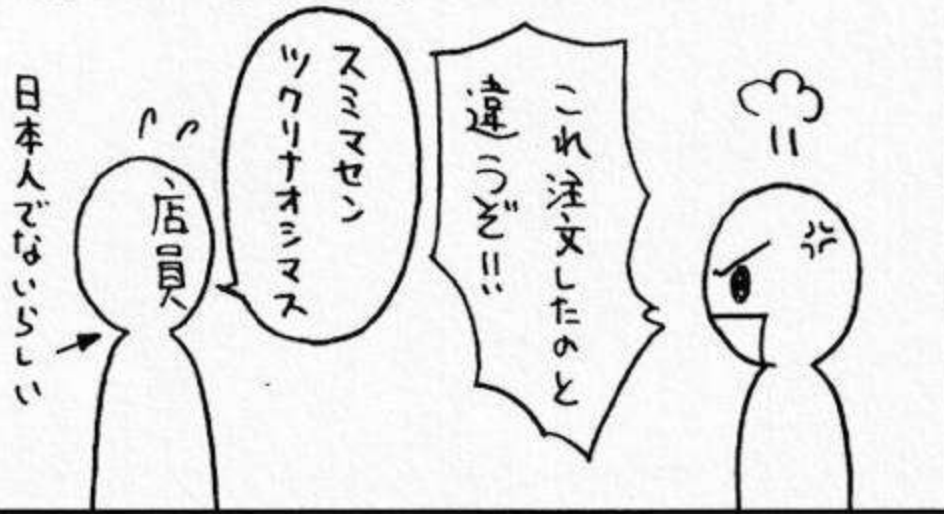 これ注文したのと
違うぞ!!
スミマセン
ツクリナオシマス
店員
日本人でないらしい